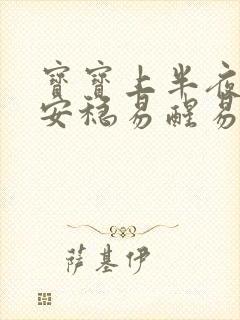 寶寶上半夜
安穩易醒易
萨基伊